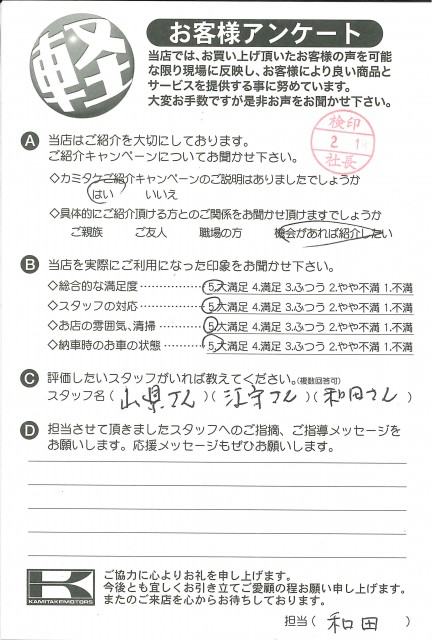 軽
お客様アンケート
当店では、お買い上げ頂いたお客様の声を可能
な限り現場に反映し、お客様により良い商品と
サービスを提供する事に努めています。
大変お手数ですが是非お声をお聞かせ下さい。
検印
2 1
社長
A 当店はご紹介を大切にしております。
ご紹介キャンペーンについてお聞かせ下さい。
◇カミタケご紹介キャンペーンのご説明はありましたでしょうか
はい いいえ
◇具体的にご紹介頂ける方とのご関係をお聞かせ頂けますでしょうか
ご親族 ご友人 職場の方 機会があれば紹介したい
B 当店を実際にご利用になった印象をお聞かせ下さい。
◇総合的な満足度・・・・・・・・・・・5.大満足 4.満足 3.ふつう 2.やや不満 1.不満
◇スタッフの対応・・・・・・・・・・・5.大満足 4.満足 3.ふつう 2.やや不満 1.不満
◇お店の雰囲気、清掃・・・・・・・・5.大満足 4.満足 3.ふつう 2.やや不満 1.不満
◇納車時のお車の状態・・・・・・・5.大満足 4.満足 3.ふつう 2.やや不満 1.不満
C 評価したいスタッフがいれば教えてください。(複数回答可)
スタッフ名(山県さん)(江守さん)(和田さん)
D 担当させて頂きましたスタッフへのご指摘、ご指導メッセージを
お願いします。応援メッセージもぜひお願いします。
K
KAMITAKEMOTORS
ご協力に心よりお礼を申し上げます。
今後とも宜しくお引き立てご愛顧の程お願い申し上げます。
またのご来店を心からお待ちしております。
担当(和田)